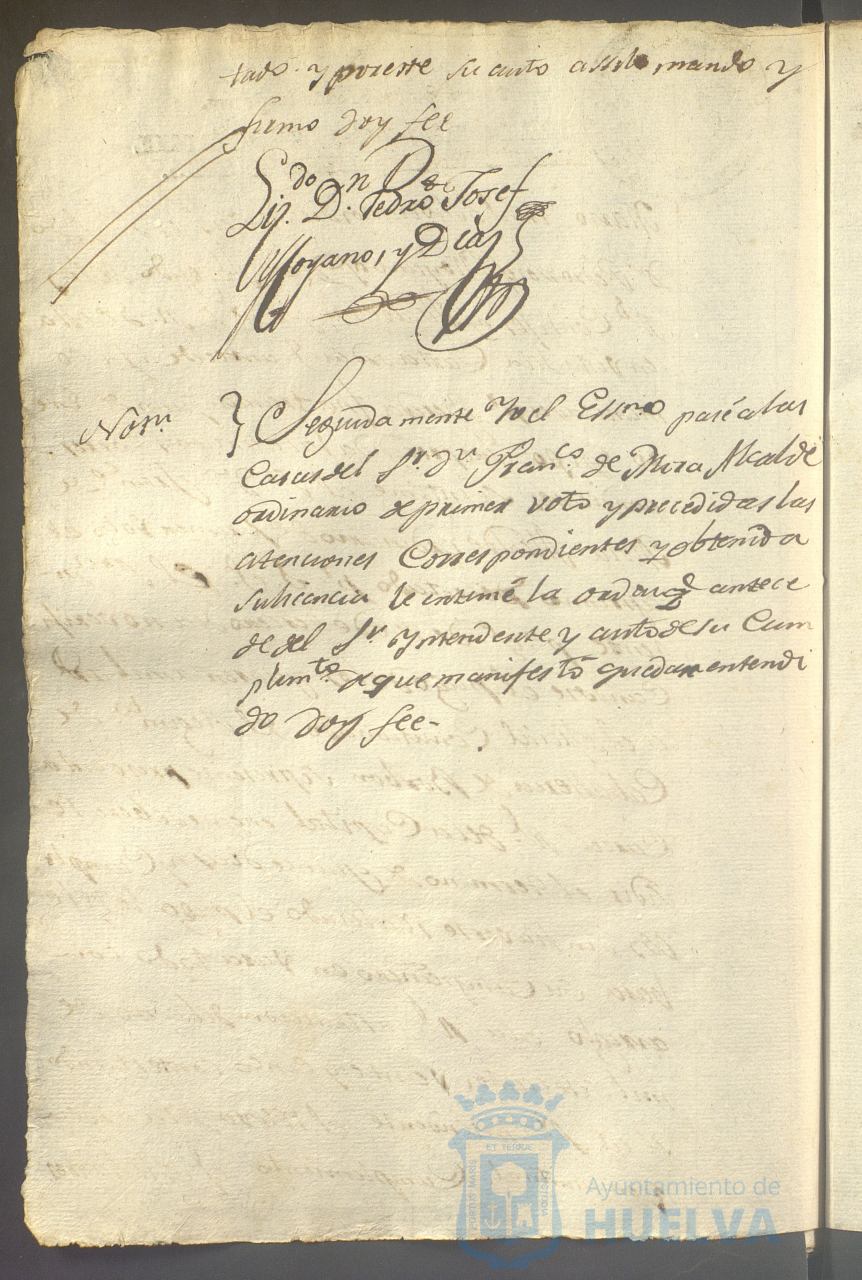 tado y por este su auto assilo mando y
firmo doy fee
Liz.do D.n Pedro Josef
Moyano, y Diaz
Nôn.
Seguidamente Yo el Essno pasé a las
Casas del S.r d.n Fran.co de Mora Alcalde
ordinario de primer voto y precedidas las
atenciones Correspondientes y obtenida
su licencia le intimé la orden q.e antece
de del S.r Yntendente y auto de su Cum
plim.to de que manifestó quedar entendi
do doy fee-
ET TERRÆ
PORTUS MARIS
CUSTODIA
Ayuntamiento de
HUELVA